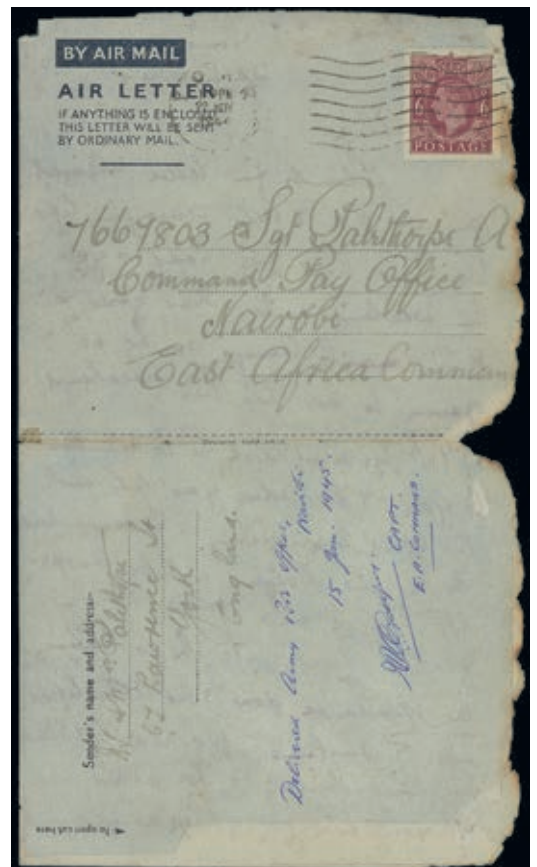 BY AIR MAIL
AIR LETTER
IF ANYTHING IS ENCLOSED
THIS LETTER WILL BE SENT
BY ORDINARY MAIL.
POSTAGE
7669803 Sgt Palethorpe A
Command Pay Office
Nairobi
East Africa Comman
Sender's name and address:-
Mrs Palethorpe
67 Lawrence St
York
England.
Delivered Army Office,
Nairobi
15 Jan. 1945.
CAPT.
E.A. Command.
To open cut here